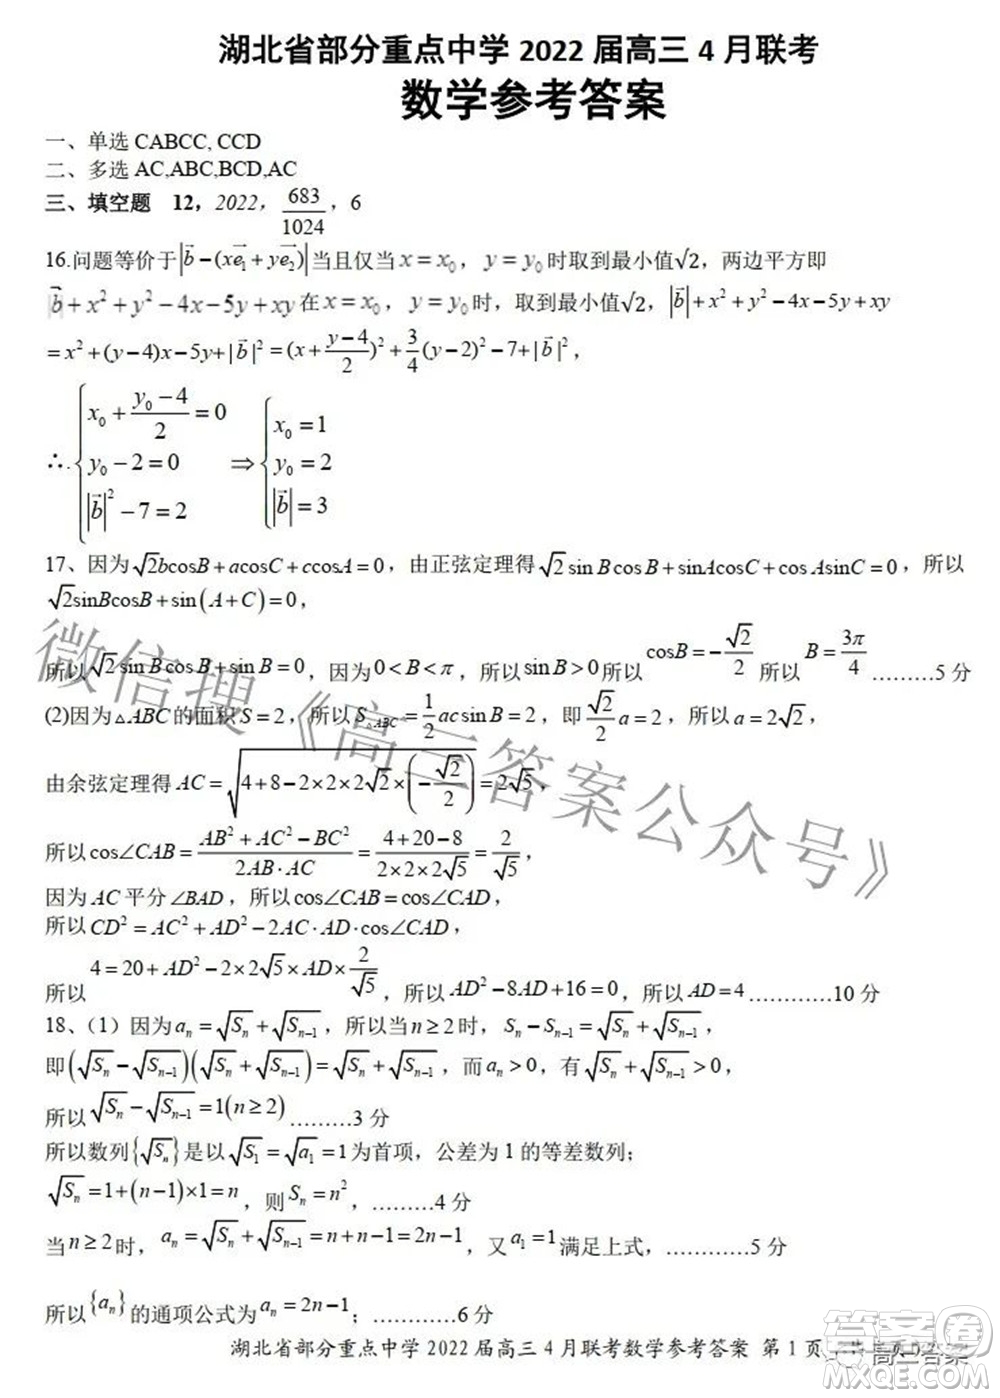 湖北省部分重点中学 2022 届高三 4 月联考
数学参考答案
一、单选 CABCC, CCD
二、多选 AC,ABC,BCD,AC
三、填空题 12，2022，683/1024，6
16.问题等价于|b⃗−(xe₁⃗+ye₂⃗)|当且仅当 x=x₀，y=y₀时取到最小值√2，两边平方即
b⃗+x²+y²−4x−5y+xy在 x=x₀，y=y₀时，取到最小值√2，|b⃗|+x²+y²−4x−5y+xy
=x²+(y−4)x−5y+|b⃗|²=(x+(y−4)/2)²+3/4(y−2)²−7+|b⃗|²，
∴.{x₀+(y₀−4)/2=0 ⇒ {x₀=1
y₀−2=0 y₀=2
|b⃗|²−7=2 |b⃗|=3
17、因为√2bcosB+acosC+ccosA=0，由正弦定理得√2sinBcosB+sinAcosC+cosAsinC=0，所以
√2sinBcosB+sin(A+C)=0，
所以√2sinBcosB+sinB=0，因为0<B<π，所以sinB>0所以cosB=−√2/2 所以 B=3π/4 ………5 分
(2)因为△ABC的面积S=2，所以S△ABC=1/2acsinB=2，即√2/2a=2，所以a=2√2，
由余弦定理得AC=√(4+8−2×2×2√2×(−√2/2))=2√5，
所以cos∠CAB=(AB²+AC²−BC²)/(2AB·AC)=(4+20−8)/(2×2×2√5)=2/√5，
因为AC平分∠BAD，所以cos∠CAB=cos∠CAD，
所以CD²=AC²+AD²−2AC·AD·cos∠CAD，
所以4=20+AD²−2×2√5×AD×2/√5，所以AD²−8AD+16=0，所以AD=4…………10 分
18、（1）因为aₙ=√Sₙ+√Sₙ₋₁，所以当n≥2时，Sₙ−Sₙ₋₁=√Sₙ+√Sₙ₋₁，
即(√Sₙ−√Sₙ₋₁)(√Sₙ+√Sₙ₋₁)=√Sₙ+√Sₙ₋₁，而aₙ>0，有√Sₙ+√Sₙ₋₁>0，
所以√Sₙ−√Sₙ₋₁=1(n≥2)………3 分
所以数列{√Sₙ}是以√S₁=√a₁=1为首项，公差为 1 的等差数列；
√Sₙ=1+(n−1)×1=n，则Sₙ=n²，………4 分
当n≥2时，aₙ=√Sₙ+√Sₙ₋₁=n+n−1=2n−1，又a₁=1满足上式，…………5 分
所以{aₙ}的通项公式为aₙ=2n−1；…………6 分
湖北省部分重点中学 2022 届高三 4 月联考数学参考答案 第 1 页
微信搜《高三答案公众号》
高三答案
答案圈
MXQE.COM